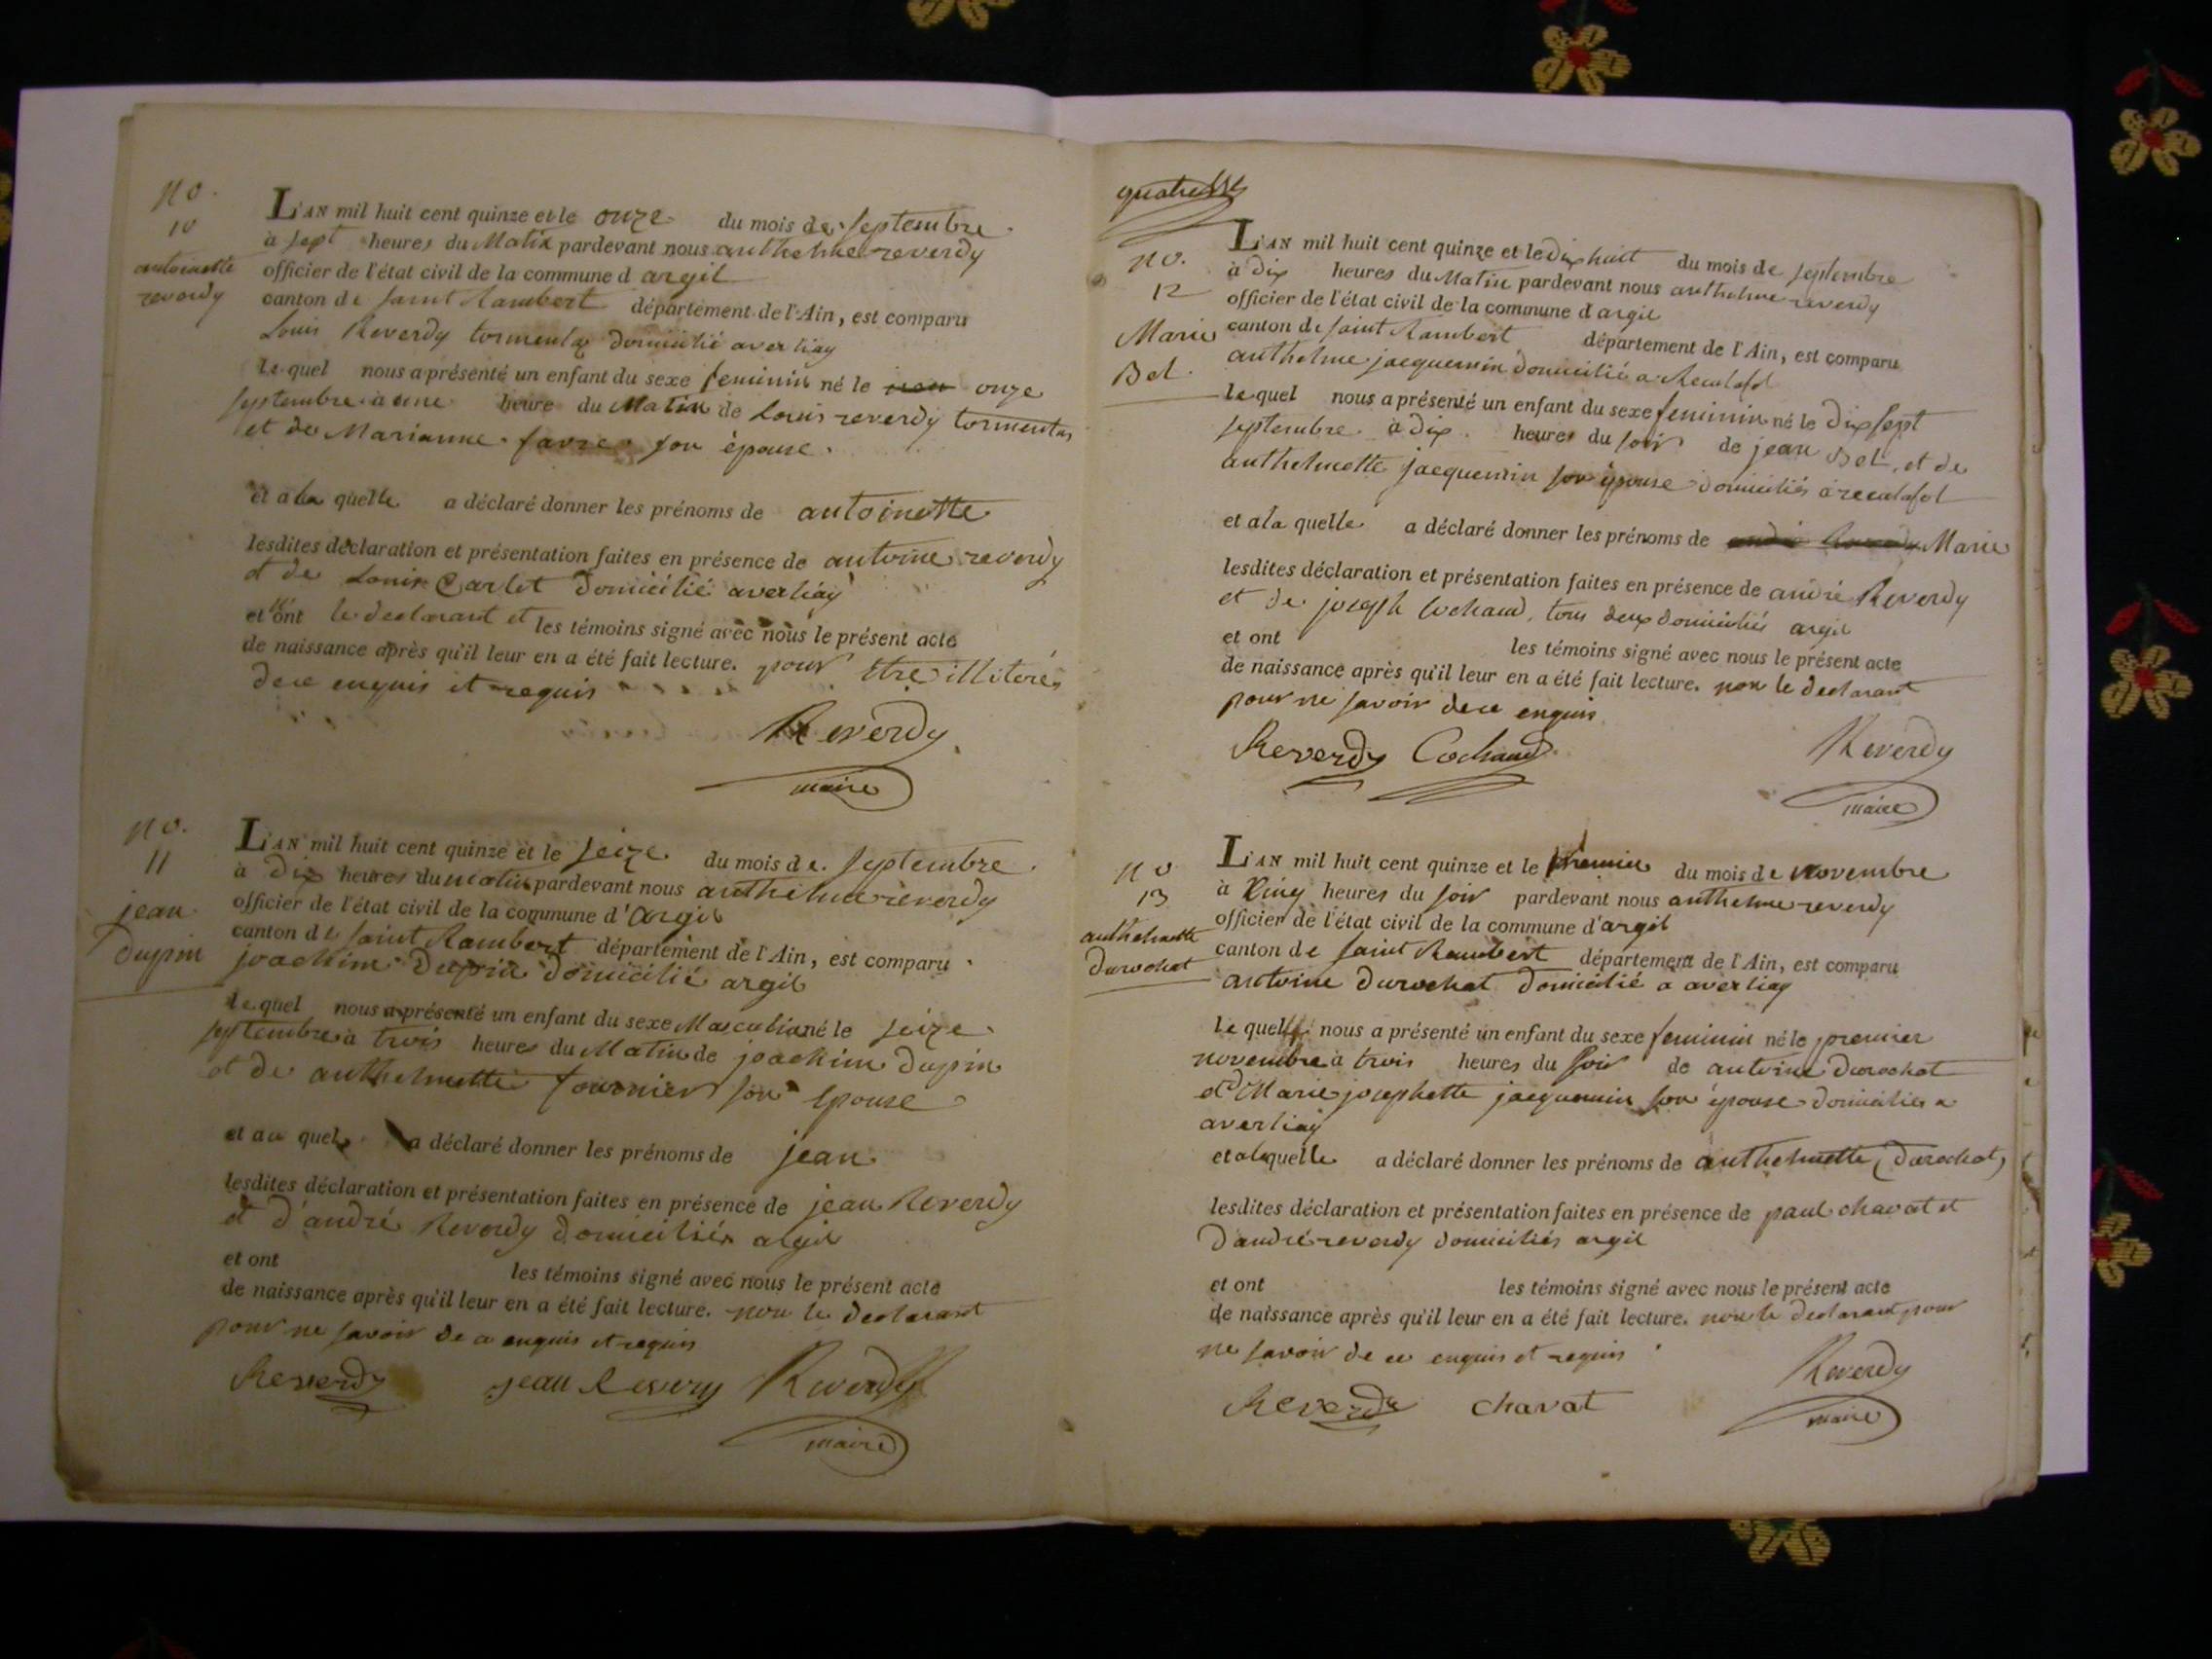 no.
10
antoinette
reverdy
L'AN mil huit cent quinze et le onze du mois de septembre
à sept heures du Matin pardevant nous anthelme reverdy
officier de l'état civil de la commune d argil
canton de saint Rambert département de l'Ain, est comparu
Louis Reverdy tormentaz domicilié averliay
le quel nous a présenté un enfant du sexe feminin né le onze
septembre a une heure du Matin de Louis reverdy tormentaz
et de Marianne favre son épouse.
et a la quelle a déclaré donner les prénoms de antoinette
lesdites déclaration et présentation faites en présence de antoine reverdy
et de Louis Carlet domicilié averliay
et n'ont le declarant et les témoins signé avec nous le présent acte
de naissance après qu'il leur en a été fait lecture. pour etre illiterés
de ce enquis et requis
Reverdy
maire
no.
11
jean
dupin
L'AN mil huit cent quinze et le seize du mois de septembre
à dix heures du matin pardevant nous anthelme reverdy
officier de l'état civil de la commune d'argil
canton de saint Rambert département de l'Ain, est comparu
joachim dupin domicilié argil
le quel nous a présenté un enfant du sexe Masculin né le seize
septembre à trois heures du Matin de joachim dupin
et de anthelmette fournier son épouse
et au quel a déclaré donner les prénoms de jean
lesdites déclaration et présentation faites en présence de jean Reverdy
et d'andré Reverdy domiciliés argil
et ont les témoins signé avec nous le présent acte
de naissance après qu'il leur en a été fait lecture. non le declarant
pour ne savoir de ce enquis et requis
Reverdy jean Reverdy Reverdy
maire
quatre
no.
12
Marie
Bel.
L'AN mil huit cent quinze et le dix huit du mois de septembre
à dix heures du Matin pardevant nous anthelme reverdy
officier de l'état civil de la commune d argil
canton de saint Rambert département de l'Ain, est comparu
anthelme jacquemin domicilié a Reculafol
le quel nous a présenté un enfant du sexe feminin né le dix sept
septembre à dix heures du soir de jean Bel, et de
anthelmette jacquemin son épouse domiciliés à reculafol
et a la quelle a déclaré donner les prénoms de Marie
lesdites déclaration et présentation faites en présence de andré Reverdy
et de joseph Cochaud, tous deux domiciliés argil
et ont les témoins signé avec nous le présent acte
de naissance après qu'il leur en a été fait lecture. non le declarant
pour ne savoir de ce enquis
Reverdy Cochaud Reverdy
maire
no
13
anthelmette
durochat
L'AN mil huit cent quinze et le premier du mois de novembre
à cinq heures du soir pardevant nous anthelme reverdy
officier de l'état civil de la commune d'argil
canton de saint Rambert département de l'Ain, est comparu
antoine durochat domicilié à averliay
le quel nous a présenté un enfant du sexe feminin né le premier
novembre à trois heures du soir de antoine durochat
et Marie josephette jacquemin son épouse domiciliés a
averliay
et a laquelle a déclaré donner les prénoms de anthelmette (durochat)
lesdites déclaration et présentation faites en présence de paul chavat et
d'andré reverdy domiciliés argil
et ont les témoins signé avec nous le présent acte
de naissance après qu'il leur en a été fait lecture. non le declarant pour
ne savoir de ce enquis et requis
Reverdy chavat Reverdy
maire